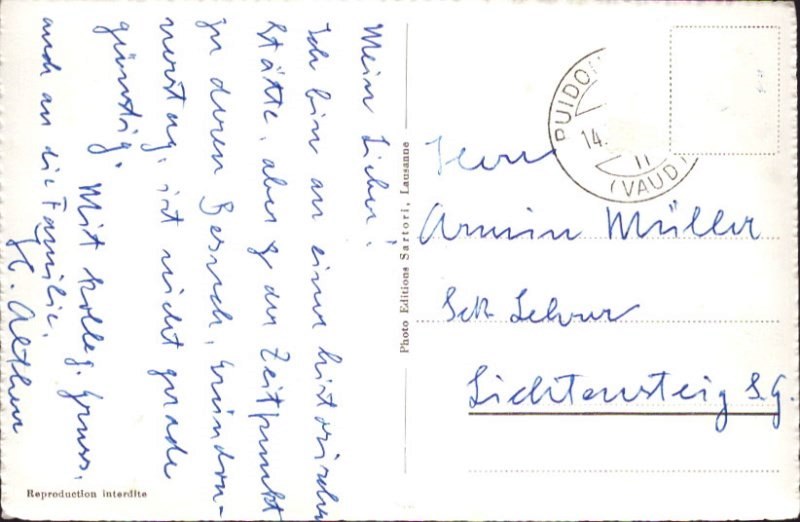 Mein Lieber!
Ich bin an einer historischen
Stätte, aber der Zeitpunkt
zu deren Besuch,
ist nicht gerade
günstig. Mit kolleg. Gruss,
auch an die Familie.
Photo Editions Sartori, Lausanne
Reproduction interdite
PUIDO
14.
11
(VAUD)
Herrn
Armin Müller
Sek Lehrer
Lichtensteig S.G.